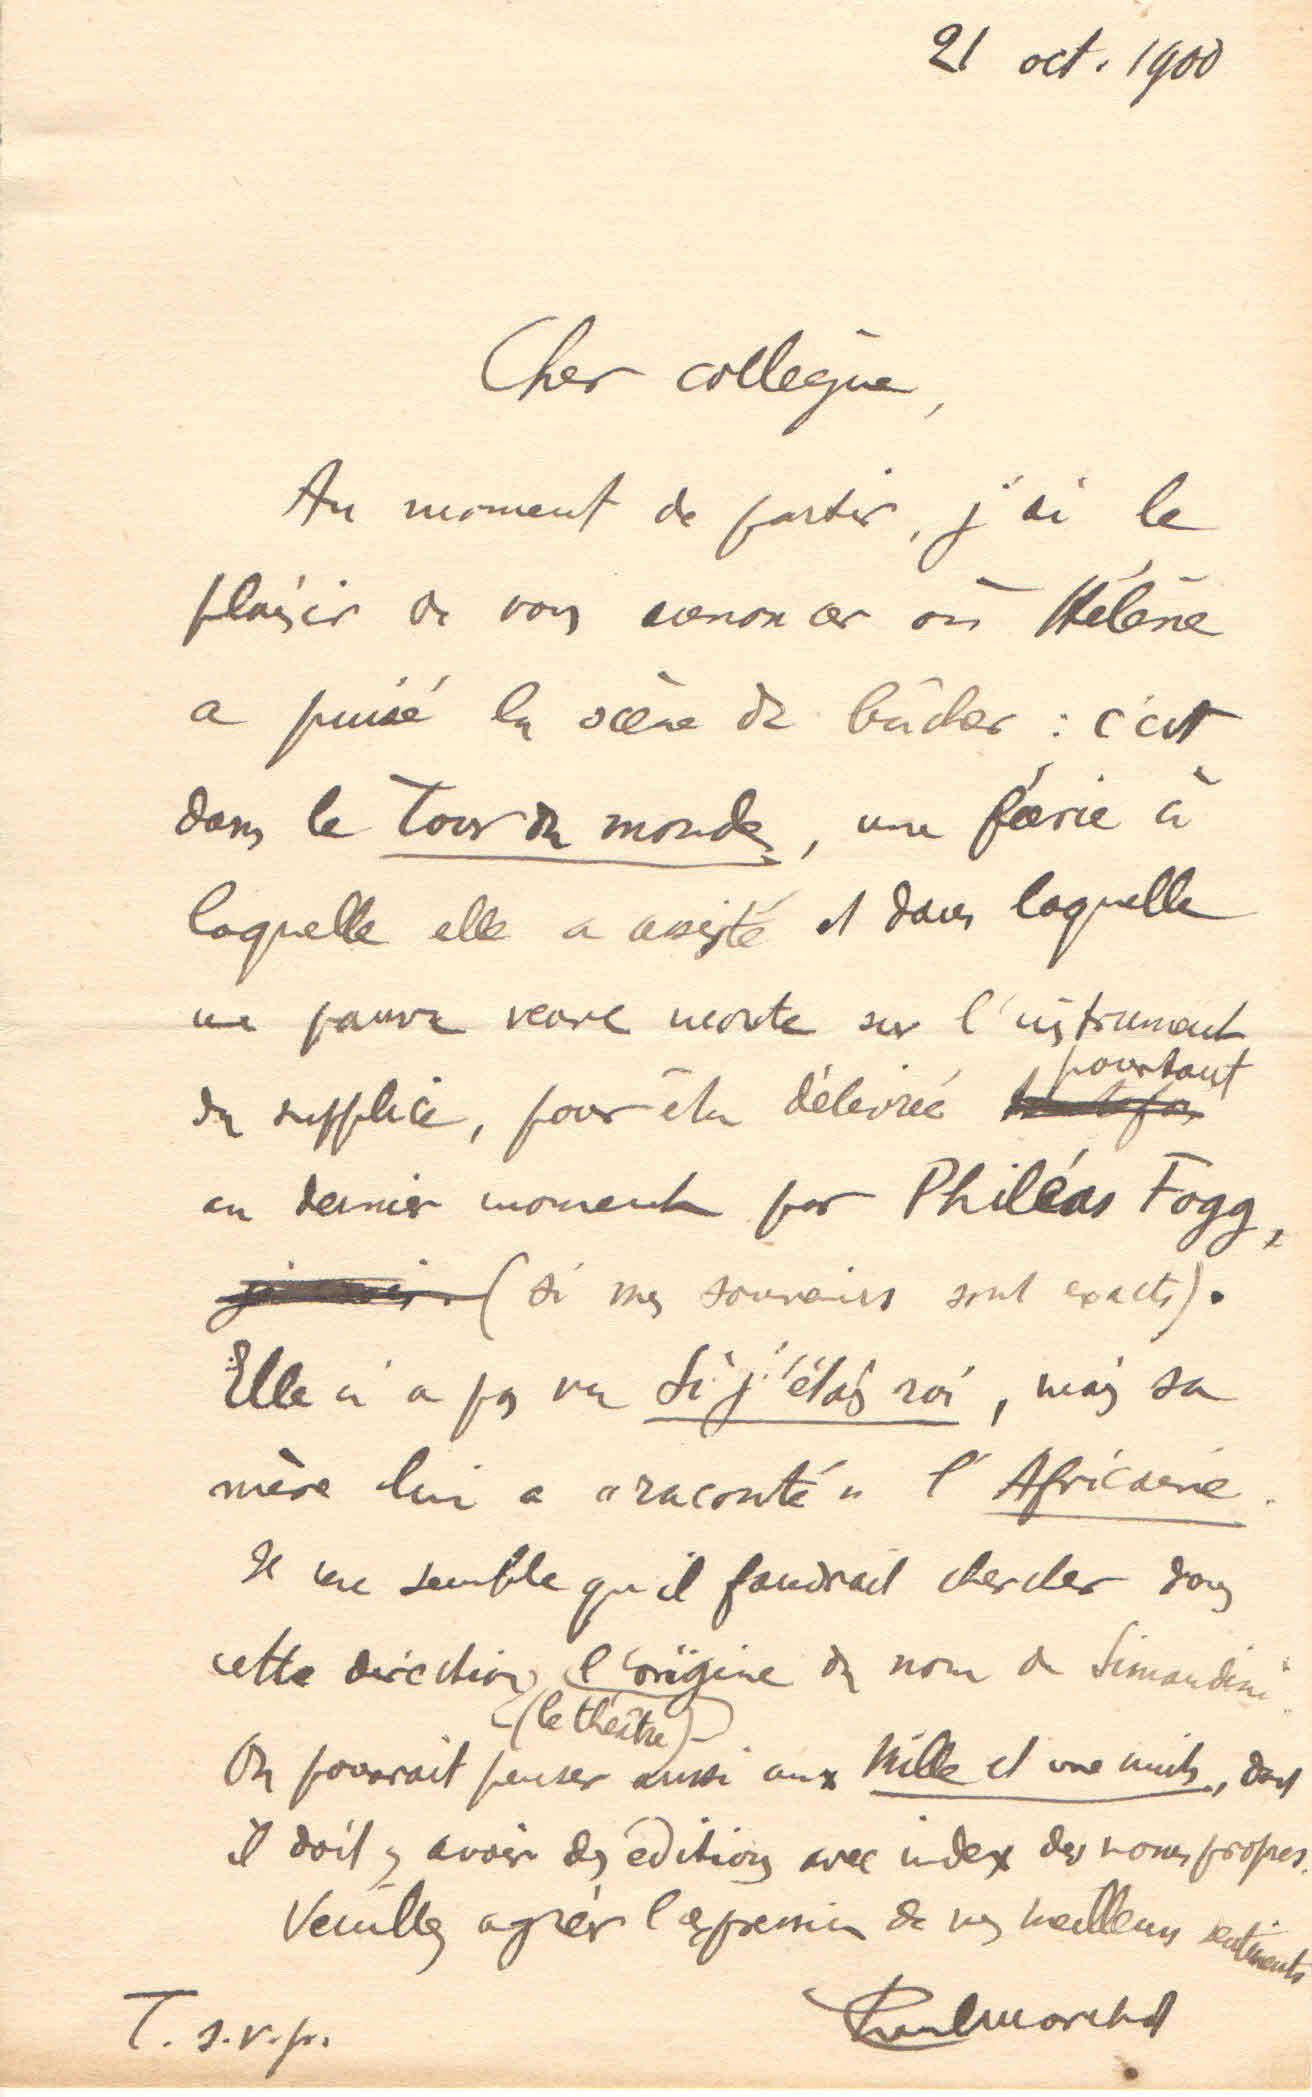 21 oct. 1900
Cher collègue,
Au moment de partir, j'ai le
plaisir de vous annoncer où Hélène
a puisé la scène du bûcher : c'est
dans le Tour du monde, une féerie à
laquelle elle a assisté et dans laquelle
une pauvre veuve monte sur l'instrument
pourtant
du supplice, pour être délivrée
au dernier moment par Philéas Fogg,
(si mes souvenirs sont exacts).
Elle n'a pas vu Si j'étais roi, mais sa
mère lui a « raconté » l'Africaine.
Il me semble qu'il faudrait chercher dans
cette direction l'origine du nom de Simandini.
(le théâtre)
On pourrait penser aussi aux Mille et une nuits, dont
il doit y avoir des éditions avec index des noms propres.
Veuillez agréer l'expression de mes meilleurs sentiments
Paul Oltramare
T. s. v. p.